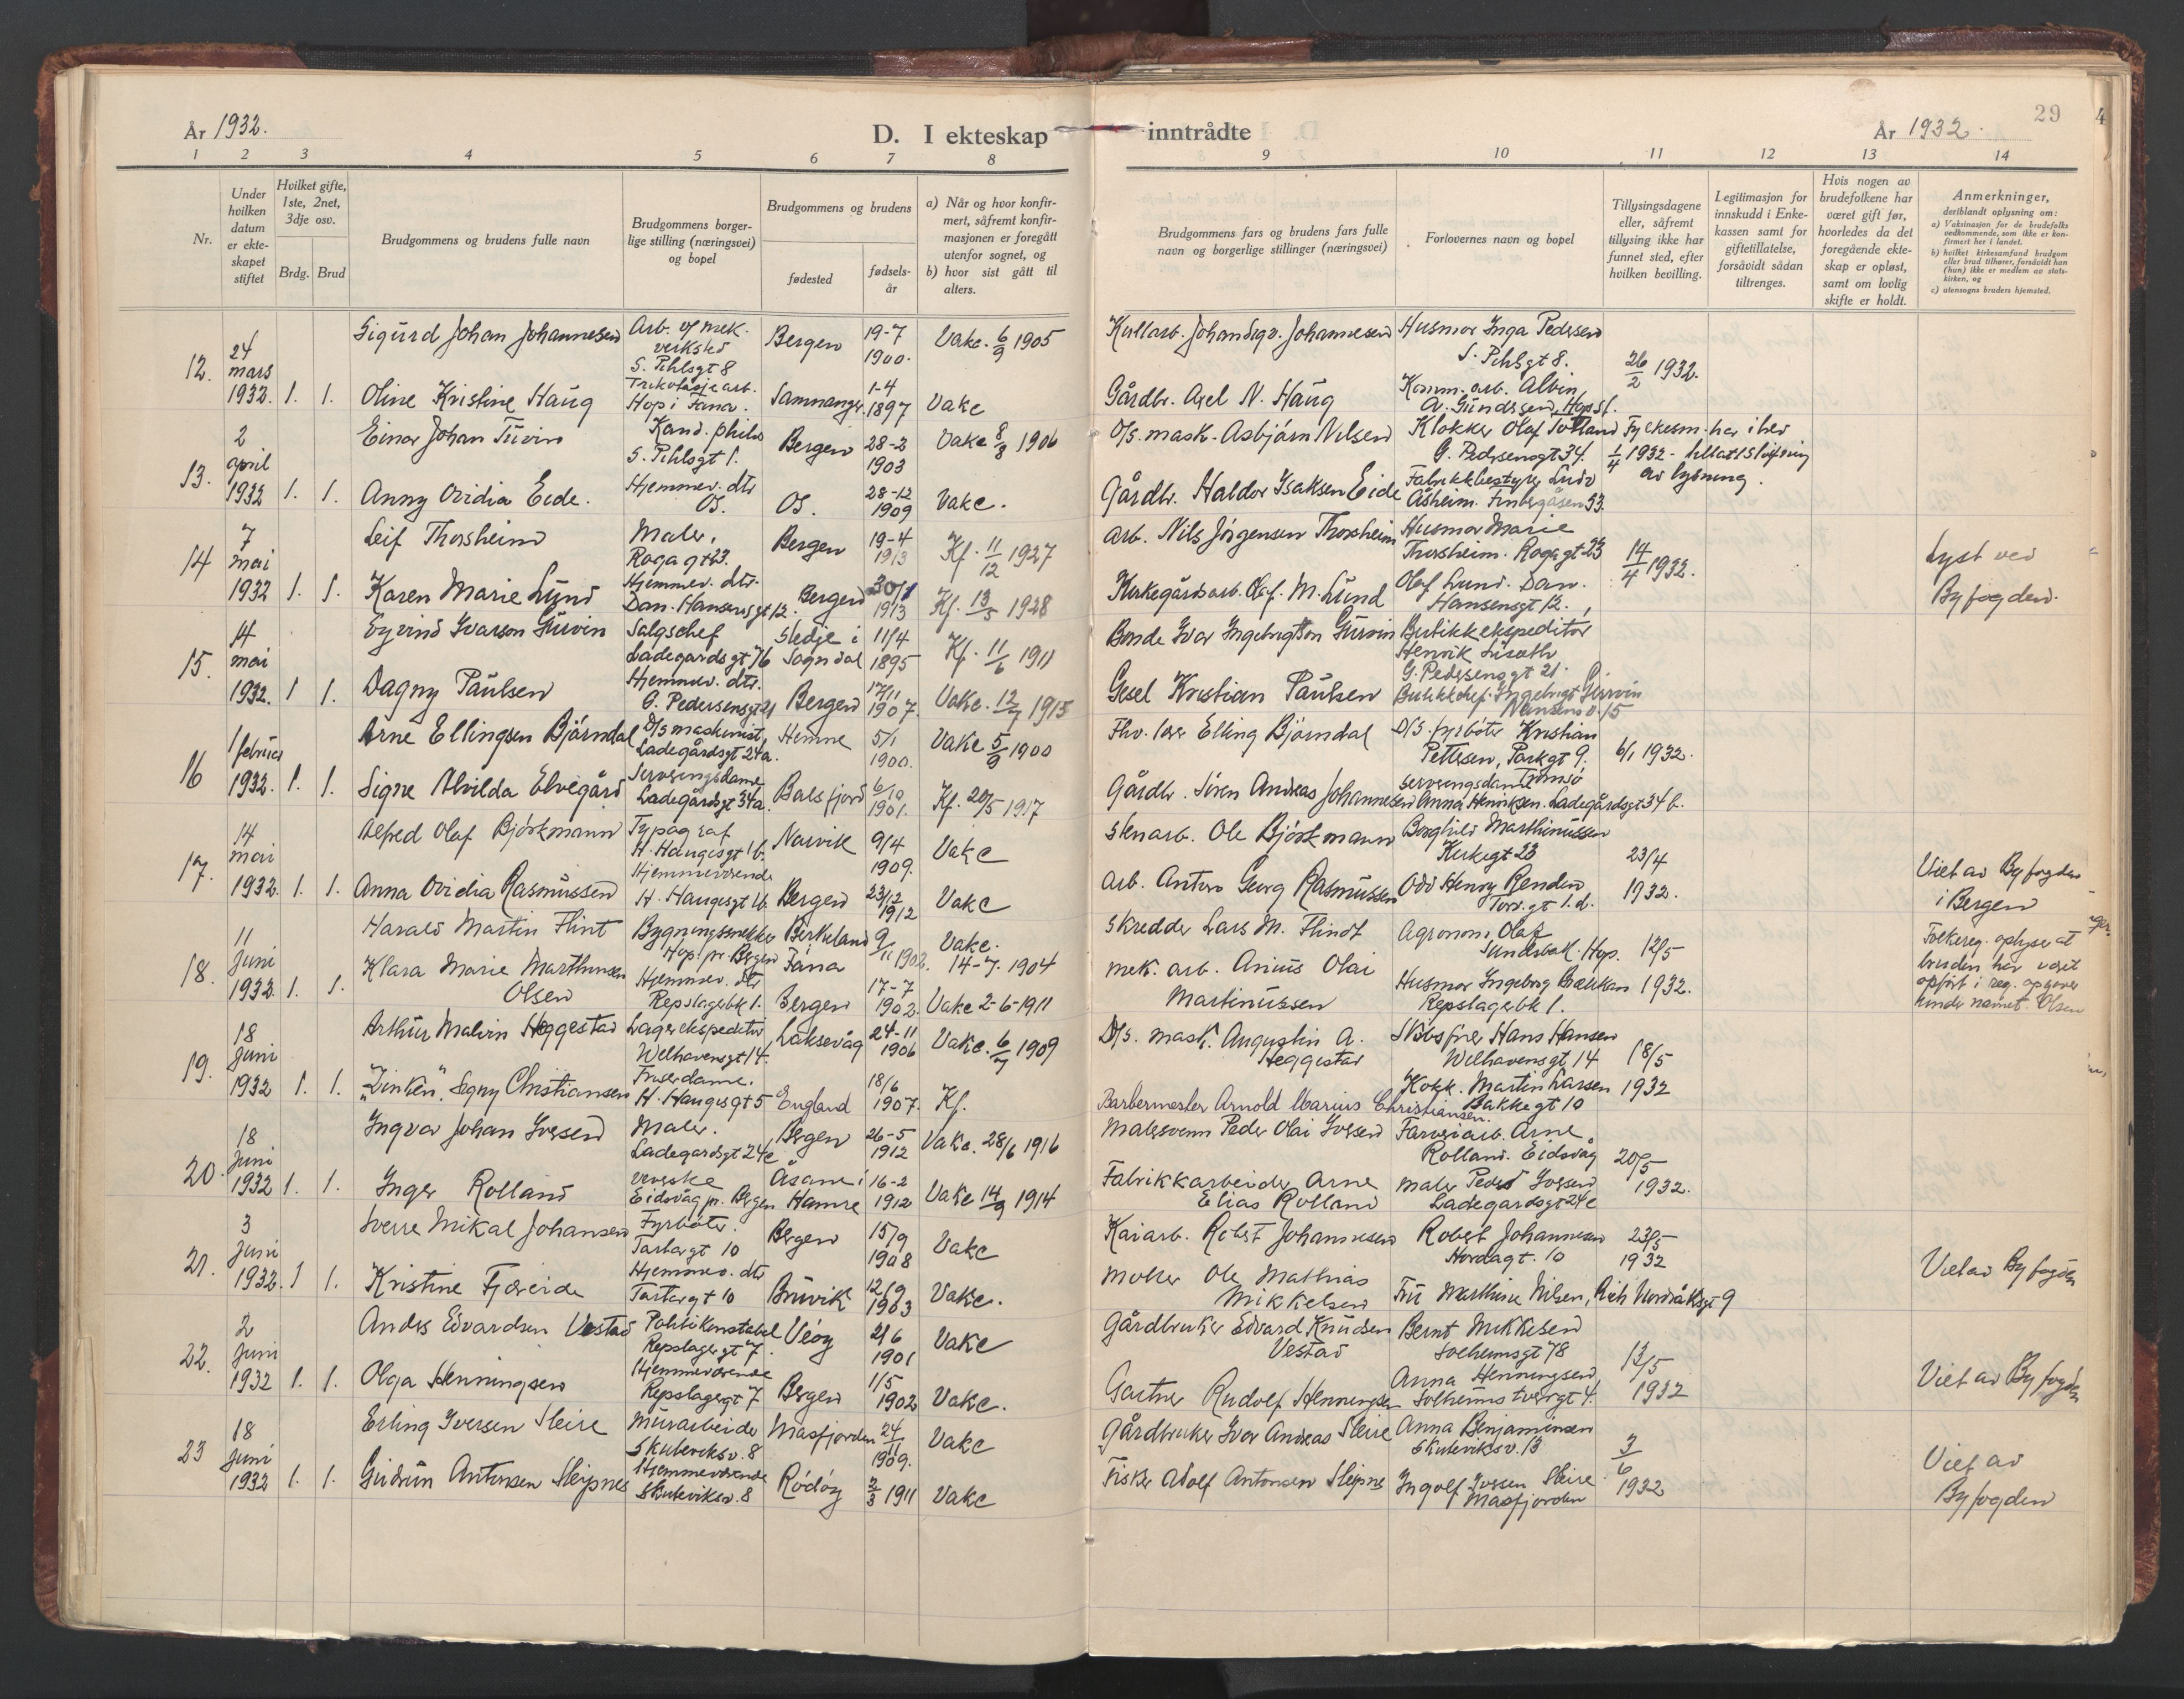 År 1932.
D. I ekteskap
1 2 3 4 5 6 7 8
Nr.
Under hvilken datum er ekteskapet stiftet
Hvilket gifte, 1ste, 2net, 3dje osv.
Brdg. Brud
Brudgommens og brudens fulle navn
Brudgommens borgerlige stilling (næringsvei) og bopel
Brudgommens og brudens
fødested
fødselsår
a) Når og hvor konfirmert, såfremt konfirmasjonen er foregått utenfor sognet, og
b) hvor sist gått til alters.
inntrådte
29
År 1932.
9 10 11 12 13 14
Brudgommens fars og brudens fars fulle navn og borgerlige stillinger (næringsvei)
Forlovernes navn og bopel
Tillysingsdagene eller, såfremt tillysing ikke har funnet sted, efter hvilken bevilling.
Legitimasjon for innskudd i Enkekassen samt for giftetillatelse, forsåvidt sådan tiltrenges.
Hvis nogen av brudefolkene har været gift før, hvorledes da det foregående ekteskap er opløst, samt om lovlig skifte er holdt.
Anmerkninger,
deriblandt oplysning om:
a) Vaksinasjon for de brudefolks vedkommende, som ikke er konfirmert her i landet.
b) hvilket kirkesamfund brudgom eller brud tilhører, forsåvidt han (hun) ikke er medlem av statskirken, og
c) utensogns bruders hjemsted.
12. 24 mars 1932. 1. 1.
Sigurd Johan Johannesen Arb. v/ mek. verksted S. Pihlsgt 8 Bergen 19-7 1900. Vakc. 6/9 1905
Oline Kristine Haug Trikotasjearb. Hop i Fana. Samnanger 1-4 1897 Vakc
Johannesen Husmor Inga Pedersen S. Pihlsgt 8. 26/2 1932.
Gårdbr. Axel N. Haug Komm. arb. Alvin A. Gundersen, Hop st.
13. 2 april 1932 1. 1.
Einar Johan Kand. philos S. Pihlsgt 1. Bergen 28-2 1903 Vakc 8/8 1906
Anny Ovidia Eide. Hjemmev. dtr Os. Os. 28-12 1909 Vakc.
D/s. mask. Asbjørn Nilsen Klokker Olaf G. Pedersensgt 34. 1/4 1932
Gårdbr. Haldor Isaksen Eide Fabrikkbestyrer Åsheim. 53. av lysning.
14 7 mai 1932 1. 1.
Leif Thorsheim Maler, Rogagt 23. Bergen 19-4 1913 Kf. 11/12 1927
Karen Marie Lund Hjemmev. dtr. Dan. Hansensgt 12. Bergen 1913 Kf. 13/5 1928
Arb. Nils Jørgensen Thorsheim Husmor Marie Thorsheim. Rogagt 23 14/4 1932. Lyst ved Byfogden.
Kirkegårdsarb. Olaf. M. Lund Olaf Lund. Dan. Hansensgt 12.
15. 14 mai 1932. 1 1.
Eyvind Ivarson Gurvin Salgschef Ladegårdsgt 76 Stedje i Sogndal 11/4 1895 Kf. 11/6 1911
Dagny Paulsen Hjemmev. dtr. G. Pedersensgt 21 Bergen 17/11 1907. Vakc. 12/7 1915
Bonde Ivar Ingebrigtson Gurvin Butikkekspeditør Henrik G. Pedersensgt 21.
Gesel Kristian Paulsen Butikkchef. Ingebrigt Gurvin Nansensv. 15
16 1 februar 1932. 1. 1.
Arne Ellingsen Bjørndal D/s maskinist, Ladegårdsgt 24a. Hemne 5/1 1900. Vakc 5/9 1900
Signe Alvilda Elvegård Serveringsdame Ladegårdsgt 34a. Balsfjord 6/10 1901. Kf. 20/5 1917
Elling Bjørndal D/s. fyrbøter Kristian Pettersen, Parkgt 9. Tromsø 6/1 1932.
Gårdbr. Søren Andreas Johannesen Serveringsdame Anna Henriksen. Ladegårdsgt 34 b.
17. 14 mai 1932. 1. 1.
Alfred Olaf Bjørkmann Typograf H. Haugesgt 1b. Narvik 9/4 1909. Vakc
Anna Ovidia Rasmussen Hjemmeværende H. Haugesgt 1b. Bergen 23/12 1912 Vakc
Stenarb. Ole Bjørkmann Borghild Marthinussen Kirkegt 23 23/4 1932. Viet av Byfogden i Bergen
Arb. Anton Georg Rasmussen Odd Henry Renden Torv.gt 1. d.
18. 11 Juni 1932. 1. 1.
Harald Martin Flint Bygningssnekker Hop pr. Bergen Birkeland Fana 9/11 1902. Vakc. 14-7. 1904
Klara Marie Marthinsen Olsen Hjemmev. dtr Repslagerbk 1. Bergen 17-7 1902. Vakc 2-6-1911
Skredder Lars M. Flindt Agronom Olaf Sundsbak. Hop. 12/5 1932.
mek. arb. Anius Olai Martinussen Husmor Ingeborg Bækkan Repslagerbk 1.
Folkereg. oplyser at bruden har vært opført i reg. opgaver under navnet Olsen
19. 18 Juni 1932 1. 1.
Arthur Malvin Heggestad Lagerekspeditør Welhavensgt 14. Laksevåg 24-11 1906 Vakc. 6/7 1909
"Zinken" Segny Christiansen Friserdame. H. Haugesgt 5 England 18/6 1907. Kf.
D/s. mask. Augustin A. Heggestad Skibsfører Hans Hansen Welhavensgt 14 18/5 1932
Barbermester Arnold Marius Christiansen. Kokk. Martin Larsen Bakkegt 10
20. 18 Juni 1932 1. 1.
Ingvar Johan Iversen Maler. Ladegårdsgt 24c Bergen 26-5 1912 Vakc. 28/6 1916
Inger Rolland Veverske Eidsvåg pr. Bergen Åsane i Hamre 16-2 1912 Vakc 14/9 1914
Malersvenn Peder Olai Iversen Farveriarb. Arne Rolland. Eidsvåg 20/5 1932.
Fabrikkarbeider Arne Elias Rolland Maler Peder Iversen Ladegårdsgt 24c
21. 3 Juni 1932. 1 1.
Sverre Mikal Johansen Fyrbøter. Tartargt 10 Bergen 15/9 1908 Vakc
Kristine Fjæreide Hjemmev. dtr Tartargt 10 Bruvik 12/9 1903 Vakc.
Kaiarb. Robert Johannesen Robert Johannesen Nordagt. 10 23/5 1932 Viet av Byfogden
Møller Ole Mathias Mikkelsen Fru Marthine Nilsen, Rich Nordråksgt 9
22. 2 Juni 1932 1. 1.
Anders Edvardsen Vestad Politikonstabel Repslagergt 7. Veøy 2/6 1901 Vakc
Olga Henningsen Hjemmeværende Repslagergt 7 Bergen 1/5 1902 Vakc.
Gårdbruker Edvard Knudsen Vestad Bernt Mikkelsen Solheimsgt 78 13/5 1932 Viet av Byfogden
Gartner Rudolf Henningsen Anna Henningsen Solheims tverrgt 4.
23 18 Juni 1932 1. 1.
Erling Iversen Steire Murarbeider Skuteviksv. 8 Masfjorden 24/11 1909. Vakc
Gudrun Antonsen Sleipnes Hjemmeværende Skuteviksv. 8 Rødøy 2/3 1911 Vakc
Gårdbruker Ivar Andreas Steire Anna Benjaminsen Skuteviksv. 13 3/6 1932 Viet av Byfogden
Fisker Adolf Antonsen Sleipnes Ingolf Iversen Steire Masfjorden